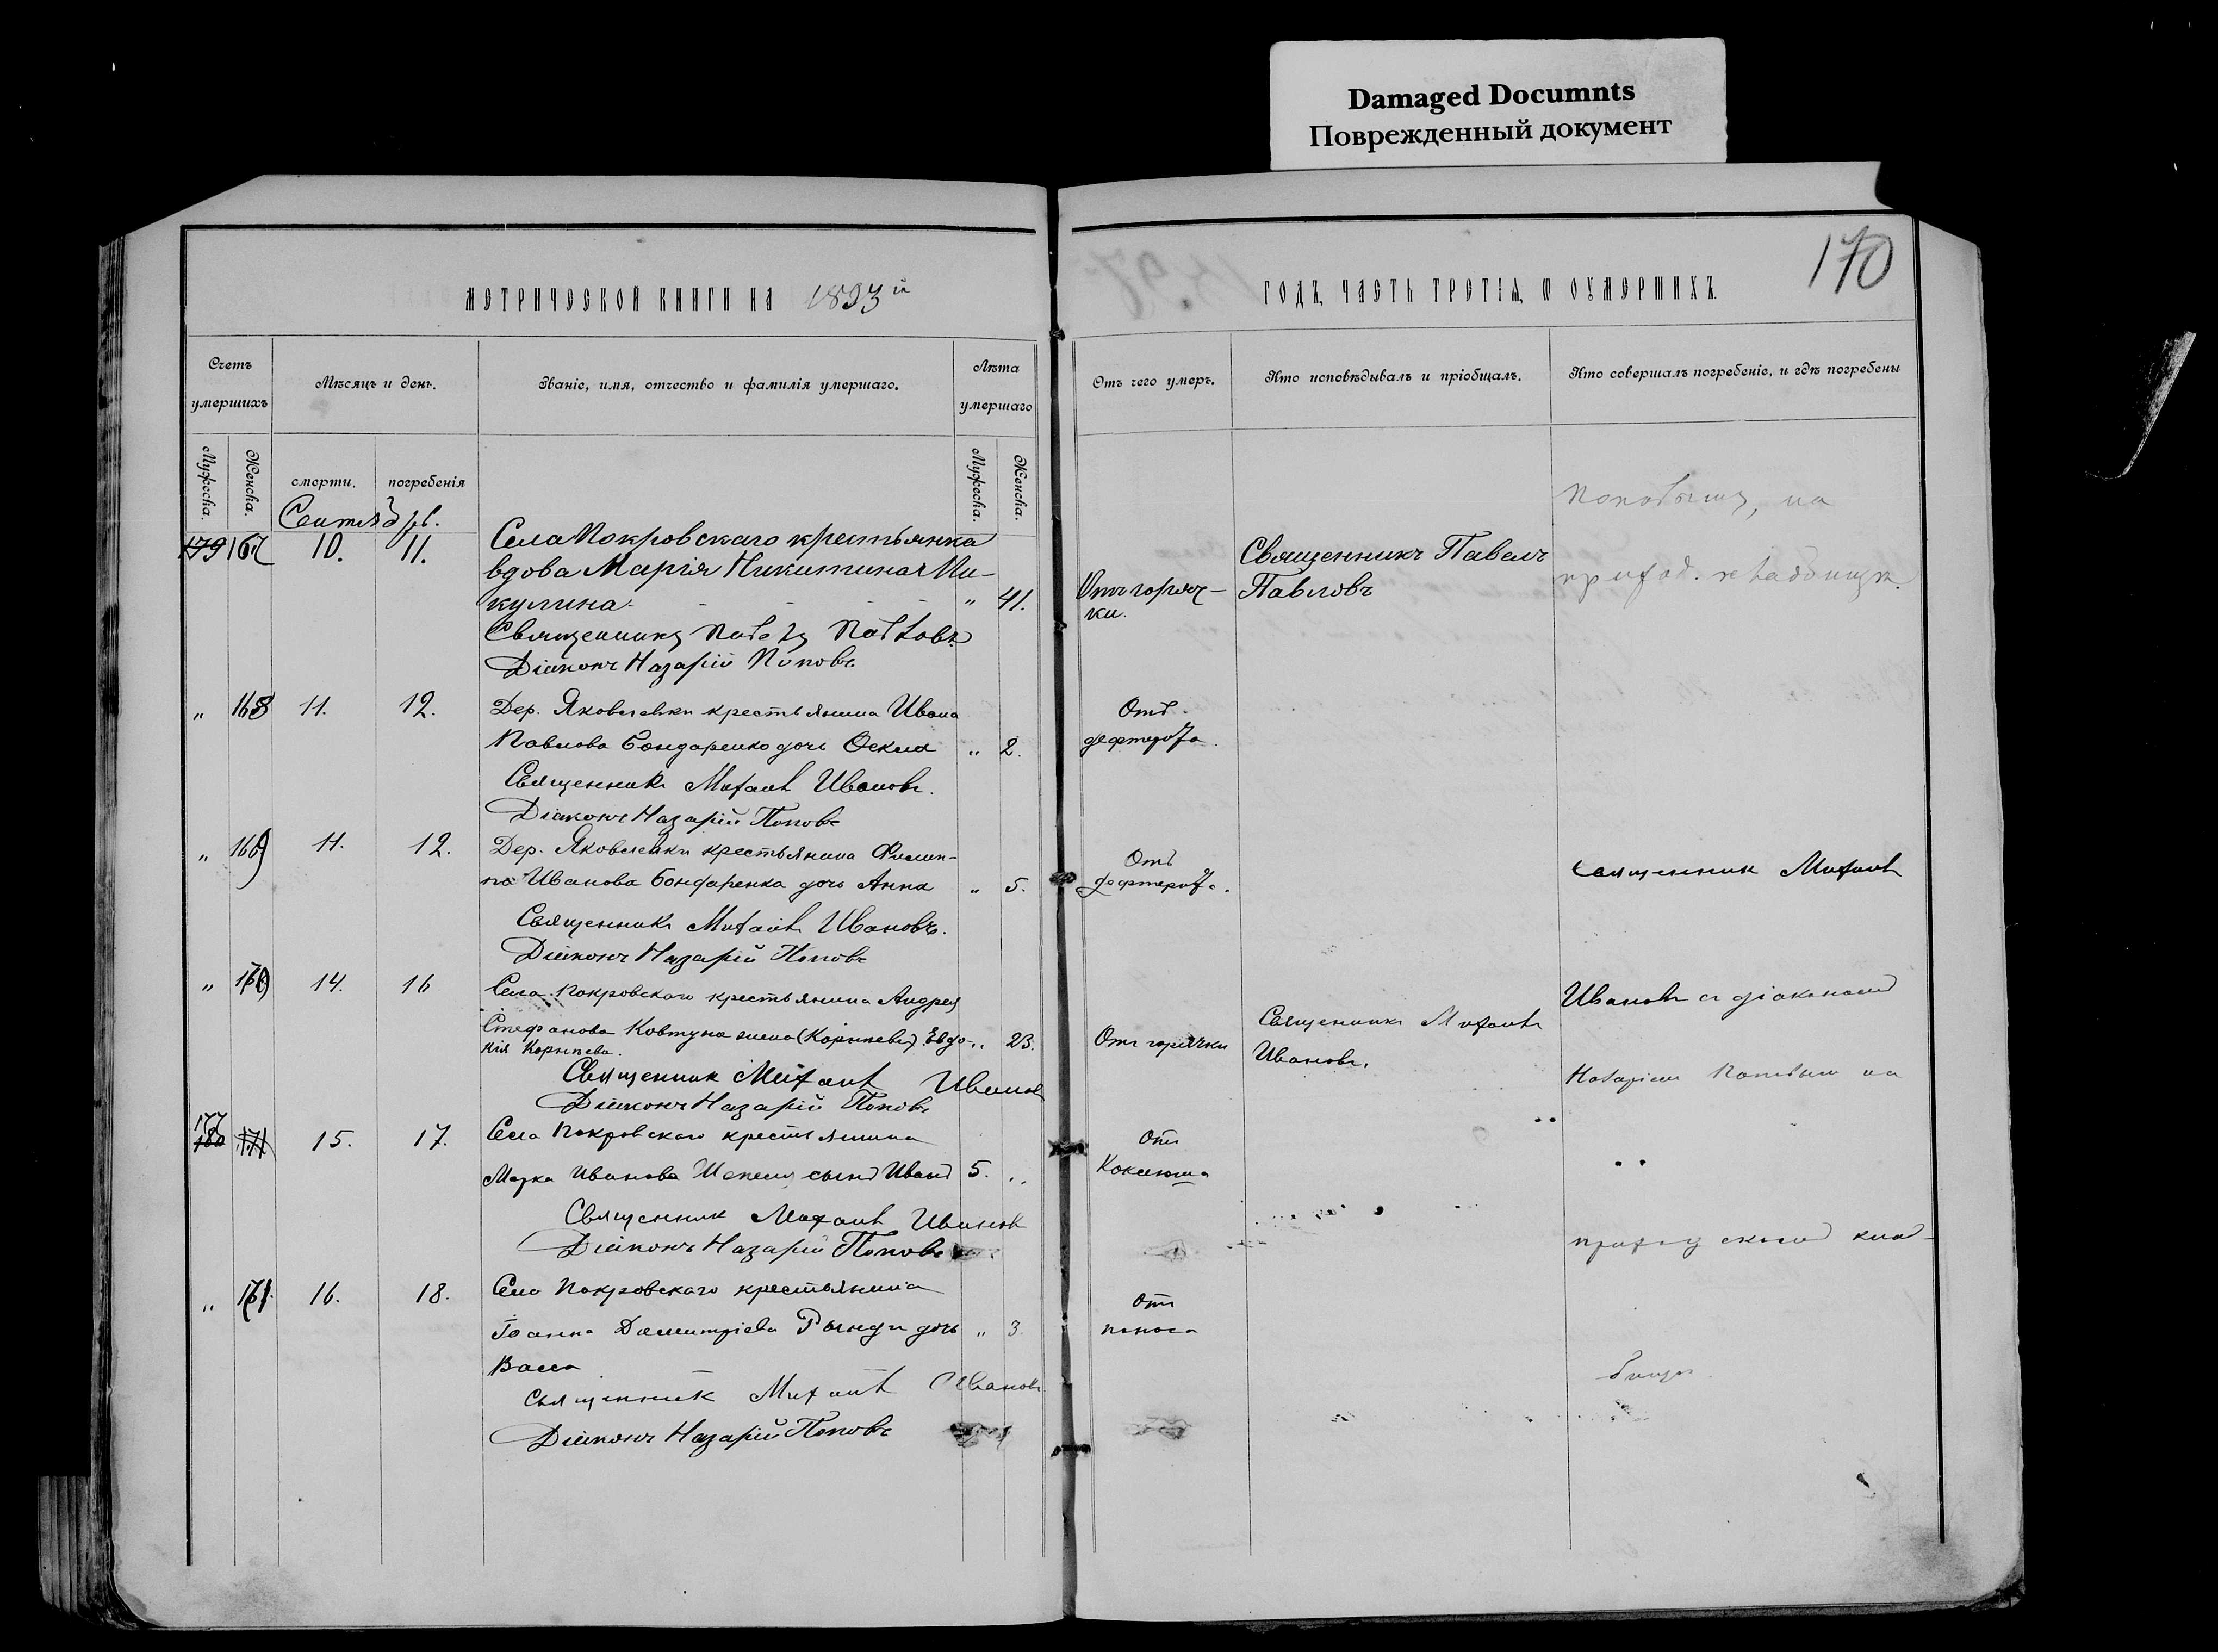 Damaged Documnts
Поврежденный документ
170
МЕТРИЧЕСКОЙ КНИГИ НА 1893 й
ГОДЪ, ЧАСТЬ ТРЕТІЯ, Ѿ ОУМЕРШИХЪ.
Счетъ умершихъ
Мѣсяцъ и день.
Званіе, имя, отчество и фамилія умершаго.
Лѣта умершаго
Отъ чего умеръ.
Кто исповѣдывалъ и пріобщалъ.
Кто совершалъ погребеніе, и гдѣ погребены
Мужеска.
Женска.
смерти.
погребенія
Мужеска.
Женска.
Сентябрь.
179 167 10. 11.
Села Покровскаго крестьянка
вдова Марія Никитина Ми-
кулина " 41.
Отъ горяч-
ки.
Священникъ Павелъ
Павловъ
Поповымъ, на
приход. кладбищѣ.
Священникъ Павелъ Павловъ
Діаконъ Назарій Поповъ
" 168 11. 12.
Дер. Яковлевки крестьянина Ивана
Павлова Бондаренко дочь " 2.
Отъ
дефтерита.
Священникъ Михаилъ Ивановъ.
Діаконъ Назарій Поповъ
" 169 11. 12.
Дер. Яковлевки крестьянина Филип-
па Иванова Бондаренка дочь Анна " 5.
Отъ
дефтерита.
Священник Михаилъ
Священникъ Михаилъ Ивановъ.
Діаконъ Назарій Поповъ
" 14. 16
Села Покровскаго крестьянина Андрея
Стефанова Ковтуна жена Евдо-
кія " 23.
Отъ горячки
Священникъ Михаилъ
Ивановъ.
Ивановъ съ діакономъ
Назаріем Поповым на
Священник Михаилъ Ивановъ
Діаконъ Назарій Поповъ
177
180 171 15. 17.
Села Покровскаго крестьянина
Марка Иванова сынъ Иванъ 5. "
Отъ
Коклюша
Священник Михаилъ Ивановъ
Діаконъ Назарій Поповъ
приходскомъ клад-
" 16. 18.
Села Покровскаго крестьянина
Іоанна Димитріева дочь " 3.
Васса
Отъ
поноса
бищѣ
Священник Михаилъ Ивановъ
Діаконъ Назарій Поповъ